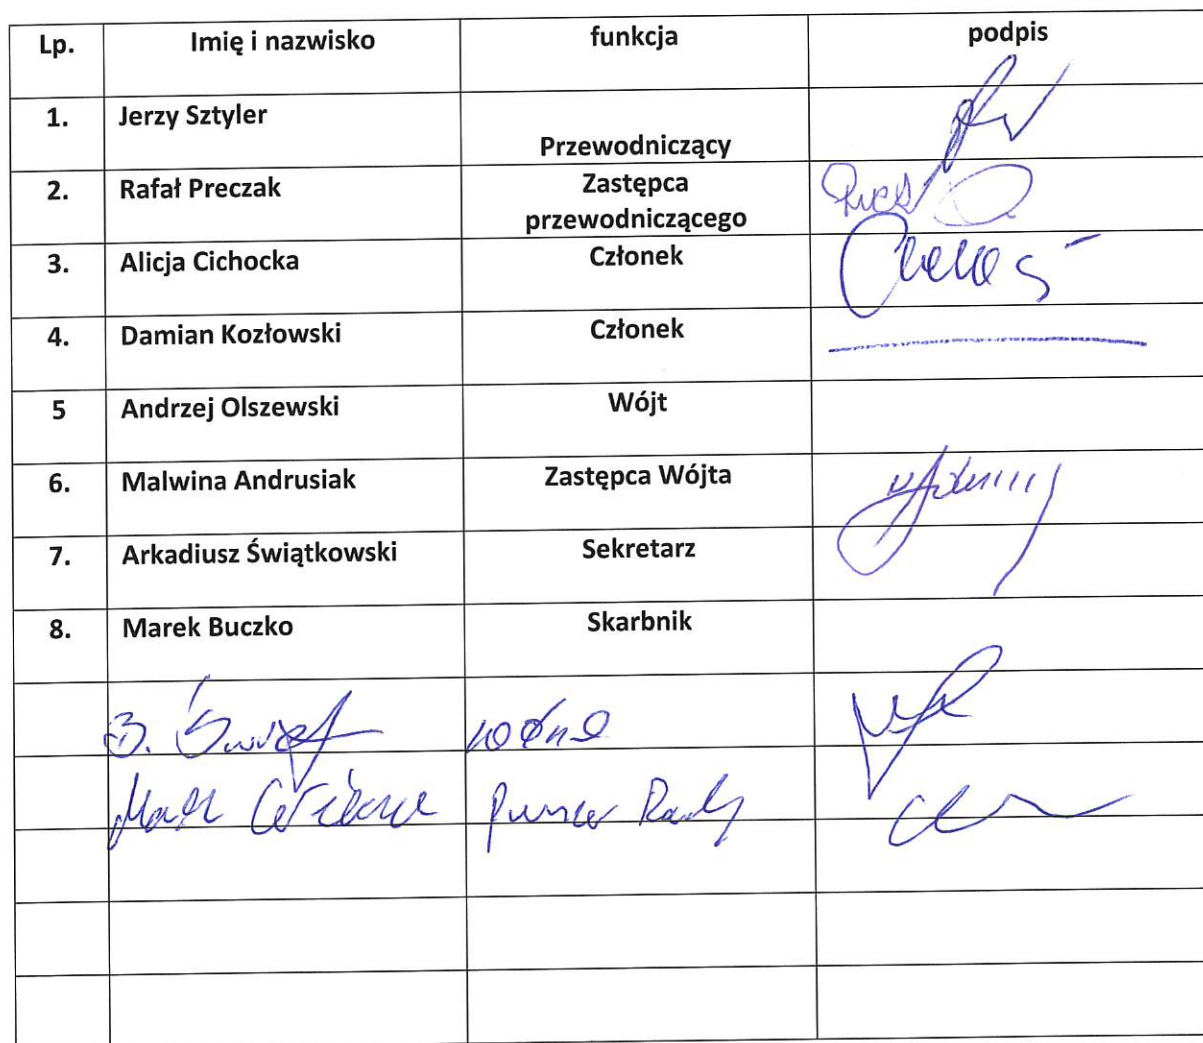 Lp. Imię i nazwisko funkcja podpis
1. Jerzy Sztyler Przewodniczący
2. Rafał Preczak Zastępca
przewodniczącego
3. Alicja Cichocka Członek
4. Damian Kozłowski Członek
5 Andrzej Olszewski Wójt
6. Malwina Andrusiak Zastępca Wójta
7. Arkadiusz Świątkowski Sekretarz
8. Marek Buczko Skarbnik
B.
Rady